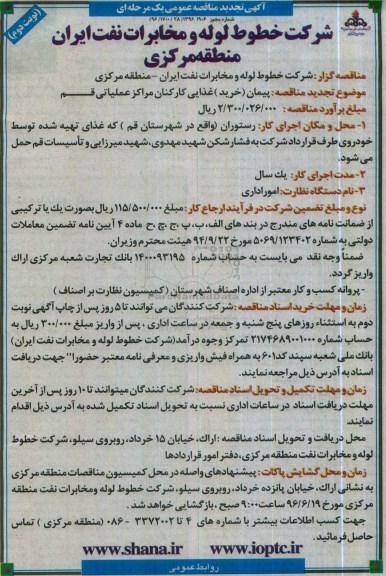 آگهی تجدید مناقصه عمومی یک مرحله ای
(نوبت دوم)
شماره مجوز ۱۳۹۶.۱۹۰۶
شرکت خطوط لوله و مخابرات نفت ایران
منطقه مرکزی
مناقصه گزار: شرکت خطوط لوله و مخابرات نفت ایران - منطقه مرکزی
موضوع تجدید مناقصه: پیمان (خرید) غذایی کارکنان مراکز عملیاتی قم
مبلغ برآورد مناقصه: ۲/۳۰۰/۰۲۶/۰۰۰ ریال
۱- محل و مکان اجرای کار: رستوران (واقع در شهرستان قم) که غذای تهیه شده توسط
خودروی طرف قرارداد شرکت به فشارشکن شهید مهدوی، شهید میرزایی و تأسیسات قم حمل
می شود.
۲- مدت اجرای کار: یک سال
۳- نام دستگاه نظارت: امور اداری
نوع و مبلغ تضمین شرکت در فرآیند ارجاع کار: مبلغ ۱۱۵/۵۰۰/۰۰۰ ریال بصورت یک یا ترکیبی
از ضمانت نامه های مندرج در بند های الف، ب، پ، ج، چ، ح ماده ۴ آیین نامه تضمین معاملات
دولتی به شماره ۵۰۶۹/۱۲۳۴۰۲ مورخ ۹۴/۹/۲۲ هیئت محترم وزیران.
ضمناً وجه نقد می بایست به حساب شماره ۱۴۰۰۰۹۳۱۹۵ بانک تجارت شعبه مرکزی اراک
واریز گردد.
- پروانه کسب و کار معتبر از اداره اصناف شهرستان (کمیسیون نظارت بر اصناف)
زمان و مهلت خرید اسناد مناقصه: شرکت کنندگان می توانند تا ۵ روز پس از چاپ آگهی نوبت
دوم به استثناء روزهای پنج شنبه و جمعه در ساعت اداری، پس از واریز مبلغ ۳۰۰/۰۰۰ ریال به
حساب شماره ۲۱۷۴۶۸۹۰۰۱۰۰۰ تمرکز وجوه درآمد (شرکت خطوط لوله و مخابرات نفت ایران)
بانک ملی شعبه سپند کد۶۰۱ به همراه فیش واریزی و معرفی نامه معتبر حضورا" جهت دریافت
اسناد به آدرس ذیل مراجعه نمایند.
زمان و مهلت تکمیل و تحویل اسناد مناقصه: شرکت کنندگان میتوانند تا ۱۰ روز پس از آخرین
مهلت دریافت اسناد در ساعات اداری نسبت به تحویل اسناد تکمیل شده به آدرس ذیل اقدام
نمایند.
محل دریافت و تحویل اسناد مناقصه: اراک، خیابان ۱۵ خرداد، روبروی سیلو، شرکت خطوط
لوله و مخابرات نفت منطقه مرکزی، دفتر امور قراردادها
زمان و محل گشایش پاکات: پیشنهادهای واصله در محل کمیسیون مناقصات منطقه مرکزی
به نشانی اراک، خیابان پانزده خرداد، روبروی سیلو، شرکت خطوط لوله و مخابرات نفت منطقه
مرکزی مورخ ۹۶/۶/۱۹ ساعت ۹:۰۰ صبح، بازگشایی خواهد شد.
جهت کسب اطلاعات بیشتر با شماره های ۴ تا ۳۳۷۲۰۰۲ - ۰۸۶ (منطقه مرکزی) تماس
حاصل فرمائید.
www.shana.ir www.ioptc.ir
روابط عمومی